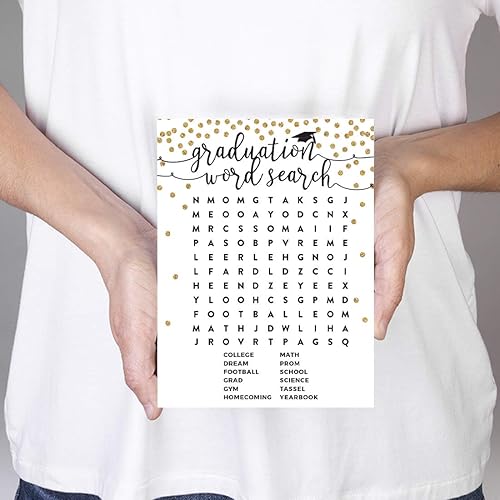 graduation
word search
N M O M G T A K S G J
M E O O A Y O D C N X
M R C S S O M A I I F
P A S O B P V R E M E
L E E R L E H G N O J
L F A R D L D Z C C I
H E E N D Z E Y E E X
Y L O O H C S G P M D
F O O T B A L L E O M
M A T H J D W L I H A
J R O V R T P A G S Q
COLLEGE MATH
DREAM PROM
FOOTBALL SCHOOL
GRAD SCIENCE
GYM TASSEL
HOMECOMING YEARBOOK